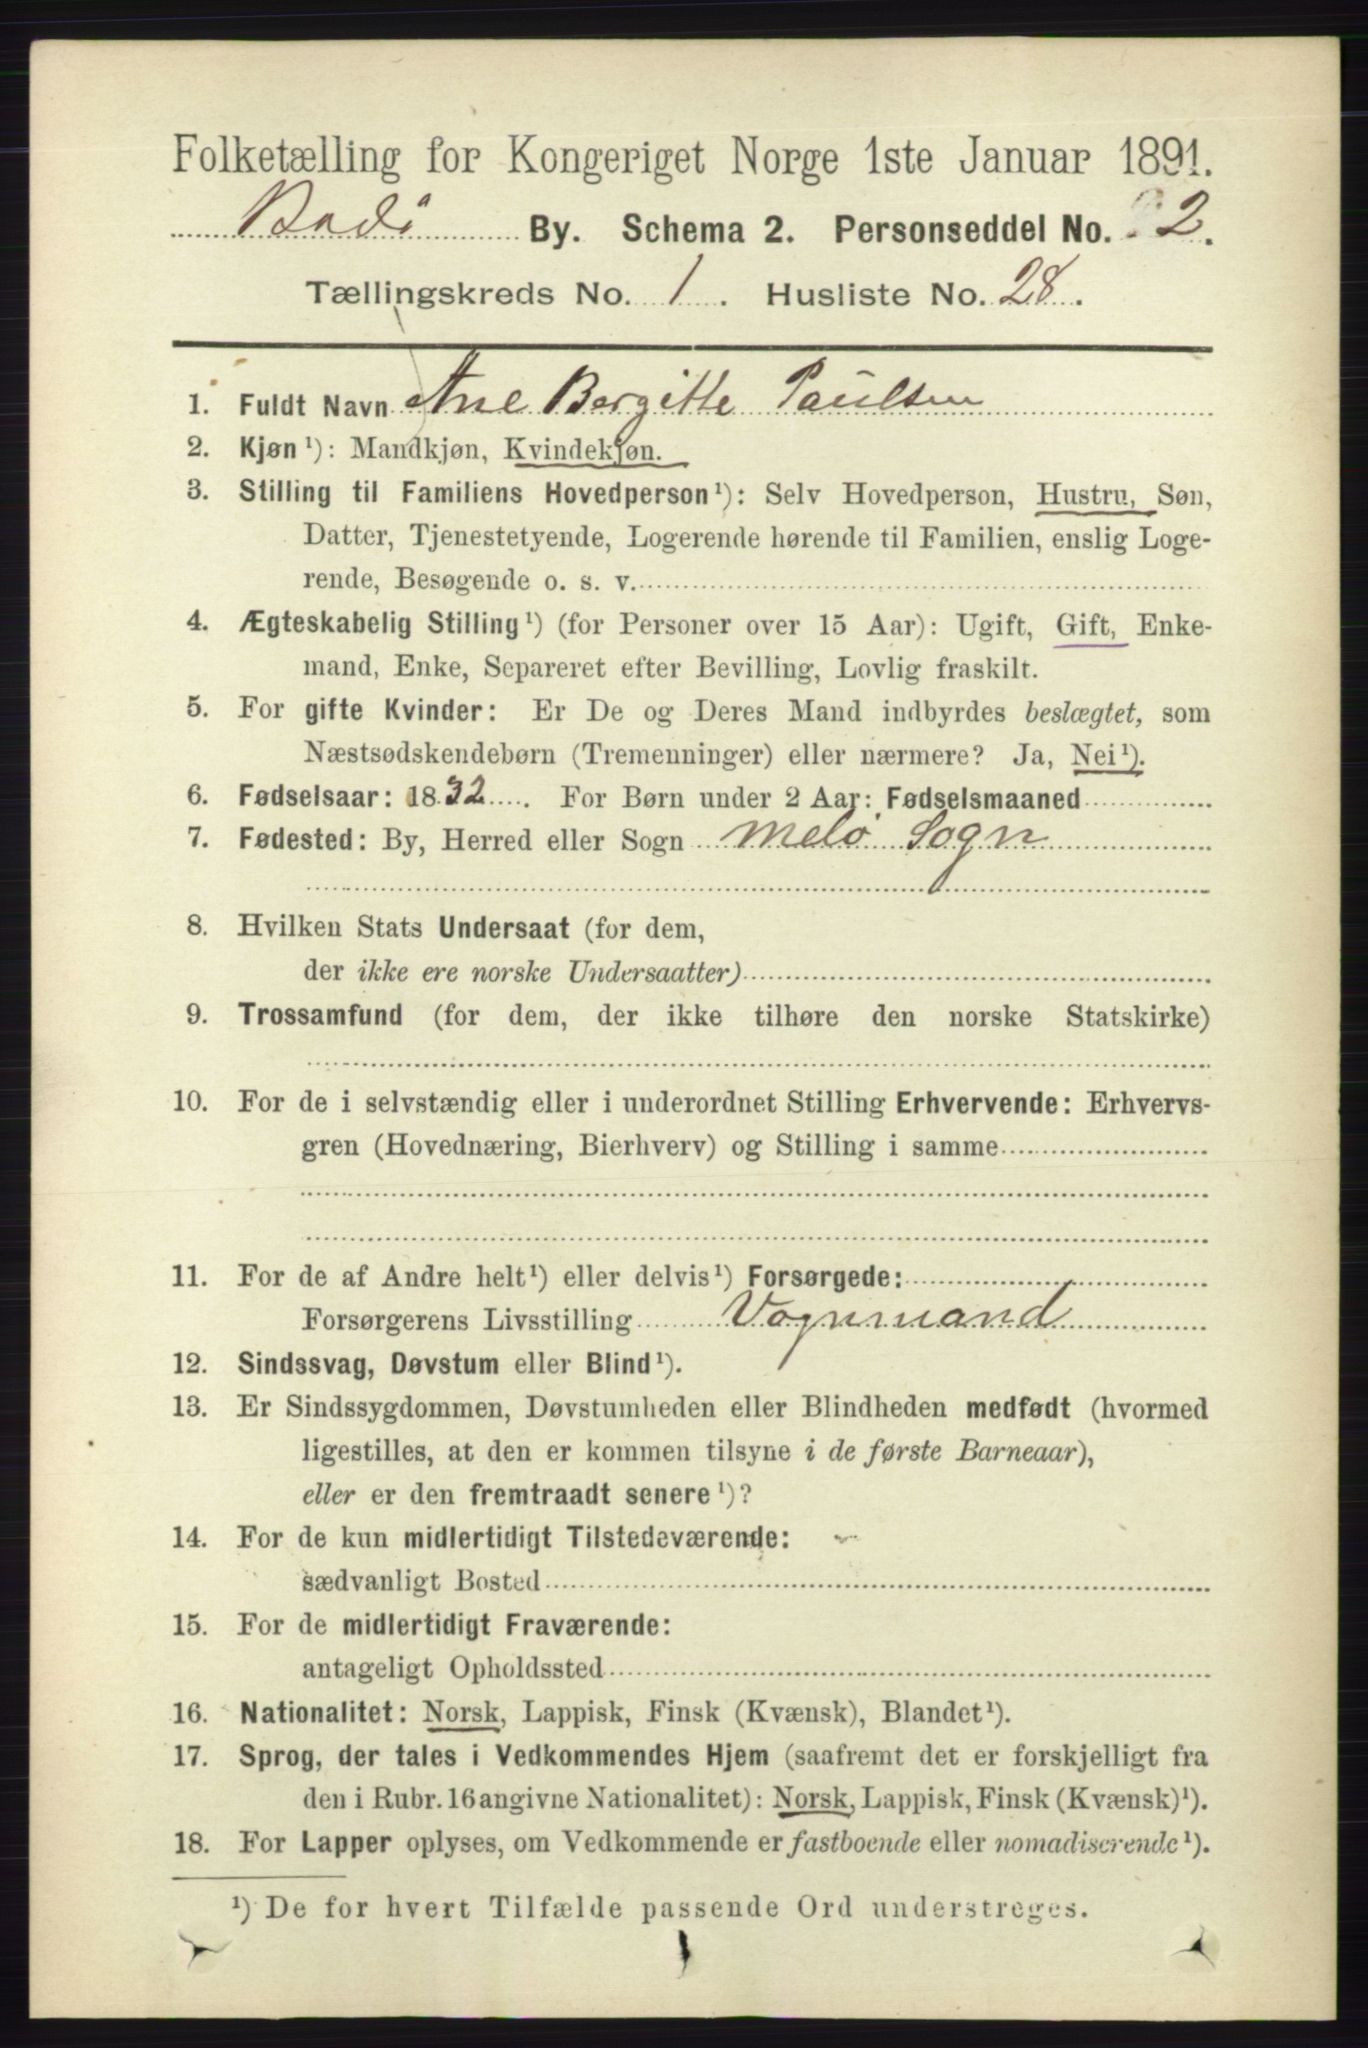 Folketælling for Kongeriget Norge 1ste Januar 1891.
Bodø By. Schema 2. Personseddel No. 2.
Tællingskreds No. 1. Husliste No. 28.
1. Fuldt Navn Ane Bergitte Paulsen
2. Kjøn ¹): Mandkjøn, Kvindekjøn.
3. Stilling til Familiens Hovedperson ¹): Selv Hovedperson, Hustru, Søn,
Datter, Tjenestetyende, Logerende hørende til Familien, enslig Loge-
rende, Besøgende o. s. v.
4. Ægteskabelig Stilling ¹) (for Personer over 15 Aar): Ugift, Gift, Enke-
mand, Enke, Separeret efter Bevilling, Lovlig fraskilt.
5. For gifte Kvinder: Er De og Deres Mand indbyrdes beslægtet, som
Næstsødskendebørn (Tremenninger) eller nærmere? Ja, Nei ¹).
6. Fødselsaar: 1832. For Børn under 2 Aar: Fødselsmaaned
7. Fødested: By, Herred eller Sogn Melø Sogn
8. Hvilken Stats Undersaat (for dem,
der ikke ere norske Undersaatter)
9. Trossamfund (for dem, der ikke tilhøre den norske Statskirke)
10. For de i selvstændig eller i underordnet Stilling Erhvervende: Erhvervs-
gren (Hovednæring, Bierhverv) og Stilling i samme
11. For de af Andre helt ¹) eller delvis ¹) Forsørgede:
Forsørgerens Livsstilling Vognmand
12. Sindssvag, Døvstum eller Blind ¹).
13. Er Sindssygdommen, Døvstumheden eller Blindheden medfødt (hvormed
ligestilles, at den er kommen tilsyne i de første Barneaar),
eller er den fremtraadt senere ¹)?
14. For de kun midlertidigt Tilstedeværende:
sædvanligt Bosted
15. For de midlertidigt Fraværende:
antageligt Opholdssted
16. Nationalitet: Norsk, Lappisk, Finsk (Kvænsk), Blandet ¹).
17. Sprog, der tales i Vedkommendes Hjem (saafremt det er forskjelligt fra
den i Rubr. 16 angivne Nationalitet): Norsk, Lappisk, Finsk (Kvænsk) ¹).
18. For Lapper oplyses, om Vedkommende er fastboende eller nomadiserende ¹).
¹) De for hvert Tilfælde passende Ord understreges.